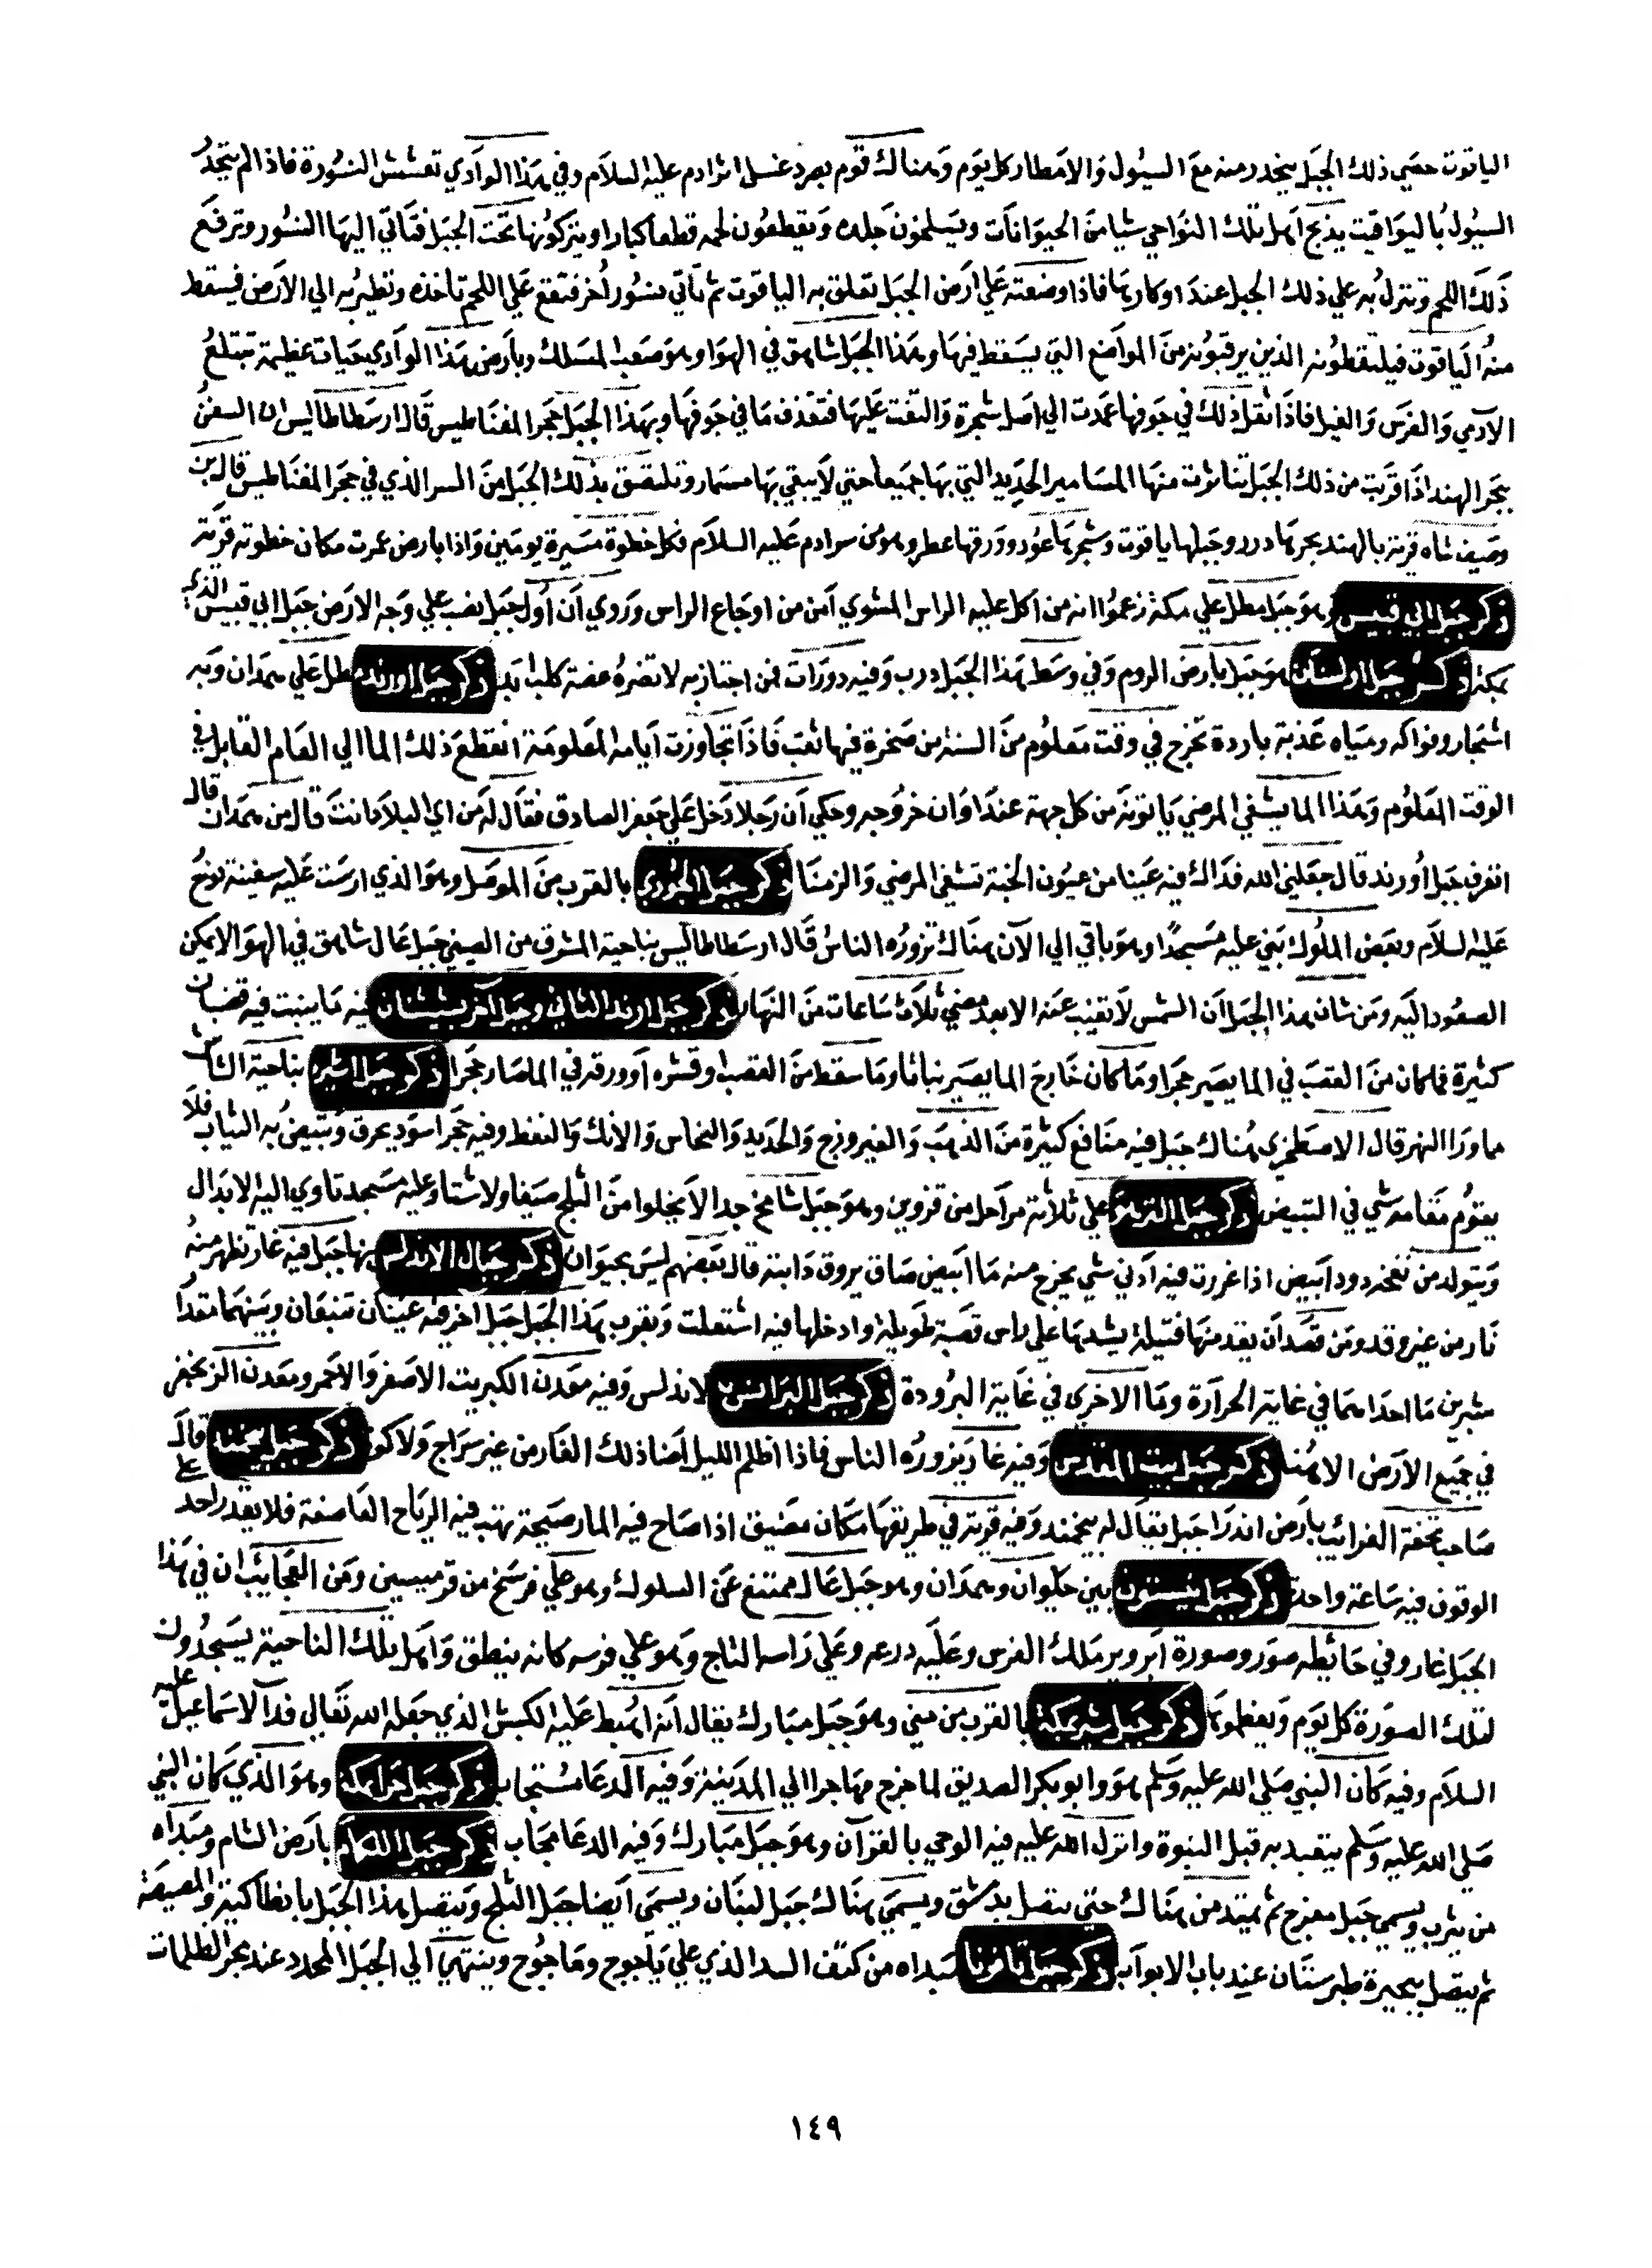 الياقوت حصي ذلك الجبل ينحدر منه مع السيول والامطار كل يوم وهناك قوم بعرد غسل اثر ادم عليه السلام وفي هذا الوادي تعشش النسورة فاذا لم يتجدُ
السيول باليواقيت يذبح اهل تلك النواحي شيا من الحيوانات ويسلخون جلده ويقطعون لحمه قطعا كبارا ويتركونها تحت الجبل فتاتي اليها النسور وترفع
ذلك اللحم وتنزل به علي ذلك الجبل عند اوكارها فاذا وضعته علي ارض الجبل تعلق به الياقوت ثم تاتي نسور اخر فتقع علي اللحم تاخذه وتطير به الي الارض فيسقط
منه الياقوت فيلتقطونه الذين يرقبونه من المواضع التي يسقط فيها وهذا الجبل شاهق في الهوا وهو صعب المسلك وبارض هذا الوادي حيات عظيمة تبتلع
الادمي والفرس والفيل فاذا ثقل ذلك في جوفها عمدت الي اصل شجرة والتفت عليها فتقذف ما في جوفها وبهذا الجبل حجر المغناطيس قال ارسطاطاليس ان السفن
ببحر الهند اذا قربت من ذلك الجبل تناثرت منها المسامير الحديد التي بها جميعا حتي لا يبقي بها مسمار وتلتصق بذلك الجبل من السر الذي في حجر المغناطيس قال بن
وصيف شاه قرية بالهند بحرها درر وجبلها ياقوت وشجرها عود وورقها عطر وهو من سر ادم عليه السلام فكل خطوة مسيرة يومين واذا بارض عمرت مكان خطوته قرية
ذكر جبل ابي قبيس وهو جبل مطل علي مكة زعموا انه من اكل عليه الراس المشوي آمن من اوجاع الراس وروي ان اول جبل نصب علي وجه الارض جبل ابي قبيس الذي
بمكة ذكر جبل اولستان هو جبل بارض الروم وفي وسط هذا الجبل درب وفيه دورات فمن اجتاز به لا تضره عضة كلب ابدا ذكر جبل اورند مطل علي همدان وبه
اشجار وفواكه ومياه عذبة باردة تخرج في وقت معلوم من السنة من صخرة فيها ثقب فاذا تجاوزت ايامه المعلومة انقطع ذلك الما الي العام القابل في
الوقت المعلوم وهذا الما يشفي المرضي ياتونه من كل جهة عند اوان خروجه وحكي ان رجلا دخل علي جعفر الصادق فقال له من اي البلاد انت قال من همدان قال
اتعرف جبل اورند قال جعلني الله فداك فيه عينا من عيون الجنة تشفي المرضي والزمنا ذكر جبل الجودي بالقرب من الموصل وهو الذي ارست عليه سفينة نوح
عليه السلام وبعض الملوك بني عليه مسجدًا وهو باقي الي الآن هناك تزوره الناس قال ارسطاطاليس بناحية المشرق من الصين جبل عال شاهق في الهوا لا يمكن
الصعود اليه ومن شان هذا الجبل ان الشمس لا تغيب عنه الا بعد مضي ثلاث ساعات من النهار ذكر جبل ارند الثاني وجبل آخر بشيشتان فيه ما ينبت فيه قضبان
كثيرة فما كان من القصب في الما يصير حجرا وما كان خارج الما يصير نباتا وما سقط من القصب او قشره او ورقه في الما صار حجرا ذكر جبل اشبر بناحية الشاش
مما ورا النهر قال الاصطخري هناك جبل فيه منافع كثيرة من الذهب والفيروزج والحديد والنحاس والانك والنفط وفيه حجر اسود يحرق وتبيض به الثياب فلا
يقوم مقامه شي في التبيض ذكر جبل علي ثلاثة مراحل من قزوين وهو جبل شامخ جدا لا يخلوا من الثلج صيفا ولا شتا وعليه مسجد تاوي اليه الابدال
ويتولد من ثلجه دود ابيض اذا غرزت فيه ادني شي يخرج منه ما ابيض صاق يروق دابته قال بعضهم ليس بحيوان ذكر جبال الاندلس بها جبل فيه غار تظهر منه
نار من غير وقد ومن قصد ان يقد منها فتيلة يشدها علي راس قصبة طويلة وادخلها فيه اشتعلت وبقرب هذا الجبل جبل اخر فيه عينان تنبعان وبينهما مقدا
شبرين ما احداهما في غاية الحرارة وما الاخري في غاية البرودة ذكر جبل البرانس لاندلس وفيه معدن الكبريت الاصفر والاحمر ومعدن الزنجفر
في جميع الارض الا هُنا ذكر جبل بيت المقدس وفيه غار يزوره الناس فاذا اظلم الليل اضا ذلك الغار من غير سراج ولا كوة ذكر جبل بيخند قال
صاحب تحفة الغرائب بارض اندرا جبل يقال له بيخند وفيه قرية في طريقها مكان مضيق اذا صاح فيه المار صيحة تهب فيه الرياح العاصفة فلا يقدر احد علي
الوقوف فيه ساعة واحدة ذكر جبل بيستون بين حلوان وهمدان وهو جبل عال ممتنع عن السلوك وهو علي فرسخ من قرميسين ومن العجائب ان في هذا
الجبل غار وفي حائطه صور وصورة ابرويز ملك الفرس وعليه درعه وعلي راسه التاج وهو علي فرسه كانه ينطق واهل تلك الناحية يسجدون
لتلك الصورة كل يوم ويعظموها ذكر جبل ثبير بمكة بالقرب من مني وهو جبل مبارك يقال انه اهبط عليه الكبش الذي جعله الله تعالي فدآ لاسماعيل عليه
السلام وفيه كان النبي صلي الله عليه وسلم هو وابو بكر الصديق لما خرج مهاجرا الي المدينة وفيه الدعا مستجاب ذكر جبل حرا بمكة وهو الذي كان النبي
صلي الله عليه وسلم يتعبد به قبل النبوة وانزل الله عليه فيه الوحي بالقرآن وهو جبل مبارك وفيه الدعا مجاب ذكر جبل اللكام بارض الشام ومبداه
من يثرب ويسمي جبل مفرح ثم يمتد من هناك حتي يتصل بدمشق ويسمي هناك جبل لبنان ويسمي ايضا جبل الثلج ويتصل هذا الجبل بانطاكية والمصيصة
ثم يتصل ببحيرة طبرستان عند باب الابواب ذكر جبل مبداه من كتف السد الذي علي ياجوج وماجوج وينتهي الي الجبل المحدد عند بحر الظلمات
١٤٩